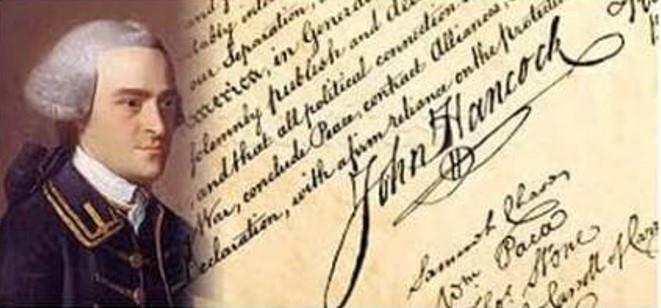 our Separation,
in General
solemnly publish and
and that all political connection
War, conclude Peace, contract Alliances,
Declaration, with a firm reliance on the
John Hancock
Samuel Chase
Wm Paca
Thos Stone
Carroll of